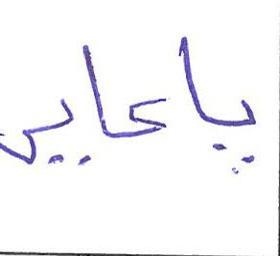 پاعایر